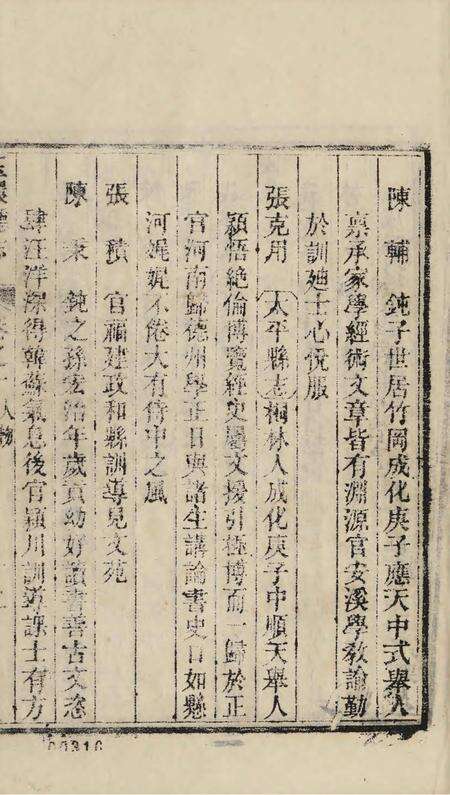 陳輔　鈍子世居竹岡成化庚子應天中式舉人
稟承家學經術文章皆有淵源官安溪學敎諭勤
於訓廸士心悅服
張克用　太平縣志桐林人成化庚子中順天舉人
穎悟絶倫博覽經史屬文援引極博而一歸於正
官河南歸德州學正日與諸生講論書史口如懸
河娓娓不倦大有儒中之風
張積　官福建政和縣訓導見文苑
陳秉　鈍之孫宏治年歲貢幼好讀書善古文恣
肆汪洋深得韓蘇氣息後官潁川訓導課士有方
人物
00316